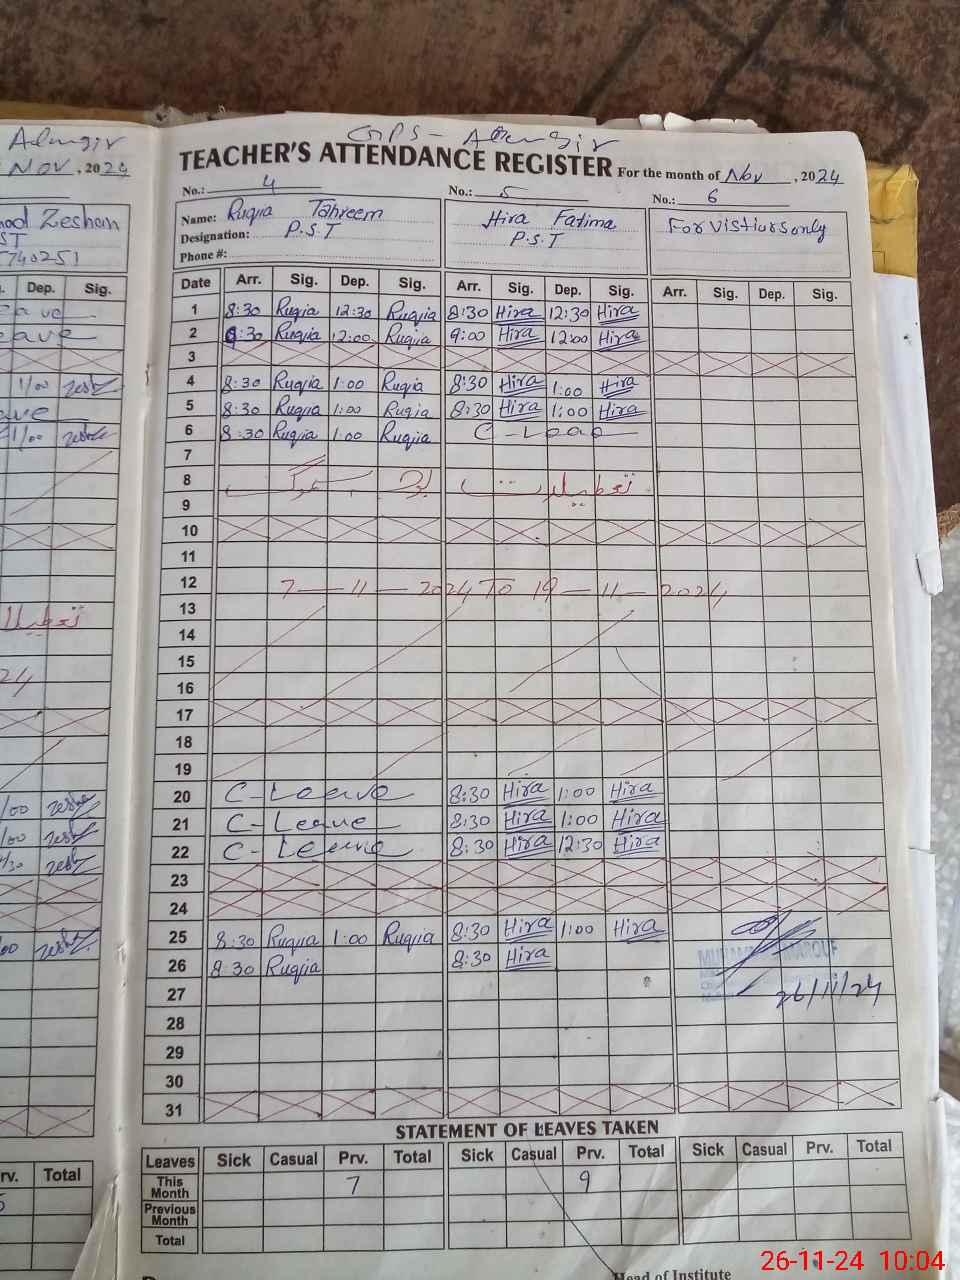 Alamgir
Nov, 2024
Zeshan
ST
740251
Dep. Sig.
eave
eave
1/00
1/00
تعطیلا
24
/00
/00
/30
/00
rv. Total
GPS - Alamgir
TEACHER'S ATTENDANCE REGISTER For the month of Nov, 2024
No.: 4 No.: 5 No.: 6
Name: Ruqia Tahreem Hira Fatima For Vistiursonly
Designation: P.S.T P.S.T
Phone #:
Date Arr. Sig. Dep. Sig. Arr. Sig. Dep. Sig. Arr. Sig. Dep. Sig.
1 8:30 Ruqia 12:30 Ruqiia 8:30 Hira 12:30 Hira
2 9:30 Ruqiia 12:00 Ruqiia 9:00 Hira 12:00 Hira
3
4 8:30 Ruqiia 1:00 Ruqiia 8:30 Hira 1:00 Hira
5 8:30 Ruqiia 1:00 Ruqia 8:30 Hira 1:00 Hira
6 8:30 Ruqiia 1:00 Ruqiia C-Leave
7
8 تعطیلات
9
10
11
12 7-11-2024 TO 19-11-2024
13
14
15
16
17
18
19
20 C-Leave 8:30 Hira 1:00 Hira
21 C-Leave 8:30 Hira 1:00 Hira
22 C-Leave 8:30 Hira 12:30 Hira
23
24
25 8:30 Ruqiia 1:00 Ruqiia 8:30 Hira 1:00 Hira
26 8:30 Ruqiia 8:30 Hira
27 26/11/24
28
29
30
31
STATEMENT OF LEAVES TAKEN
Leaves Sick Casual Prv. Total Sick Casual Prv. Total Sick Casual Prv. Total
This Month 7 9
Previous Month
Total
Head of Institute
26-11-24 10:04